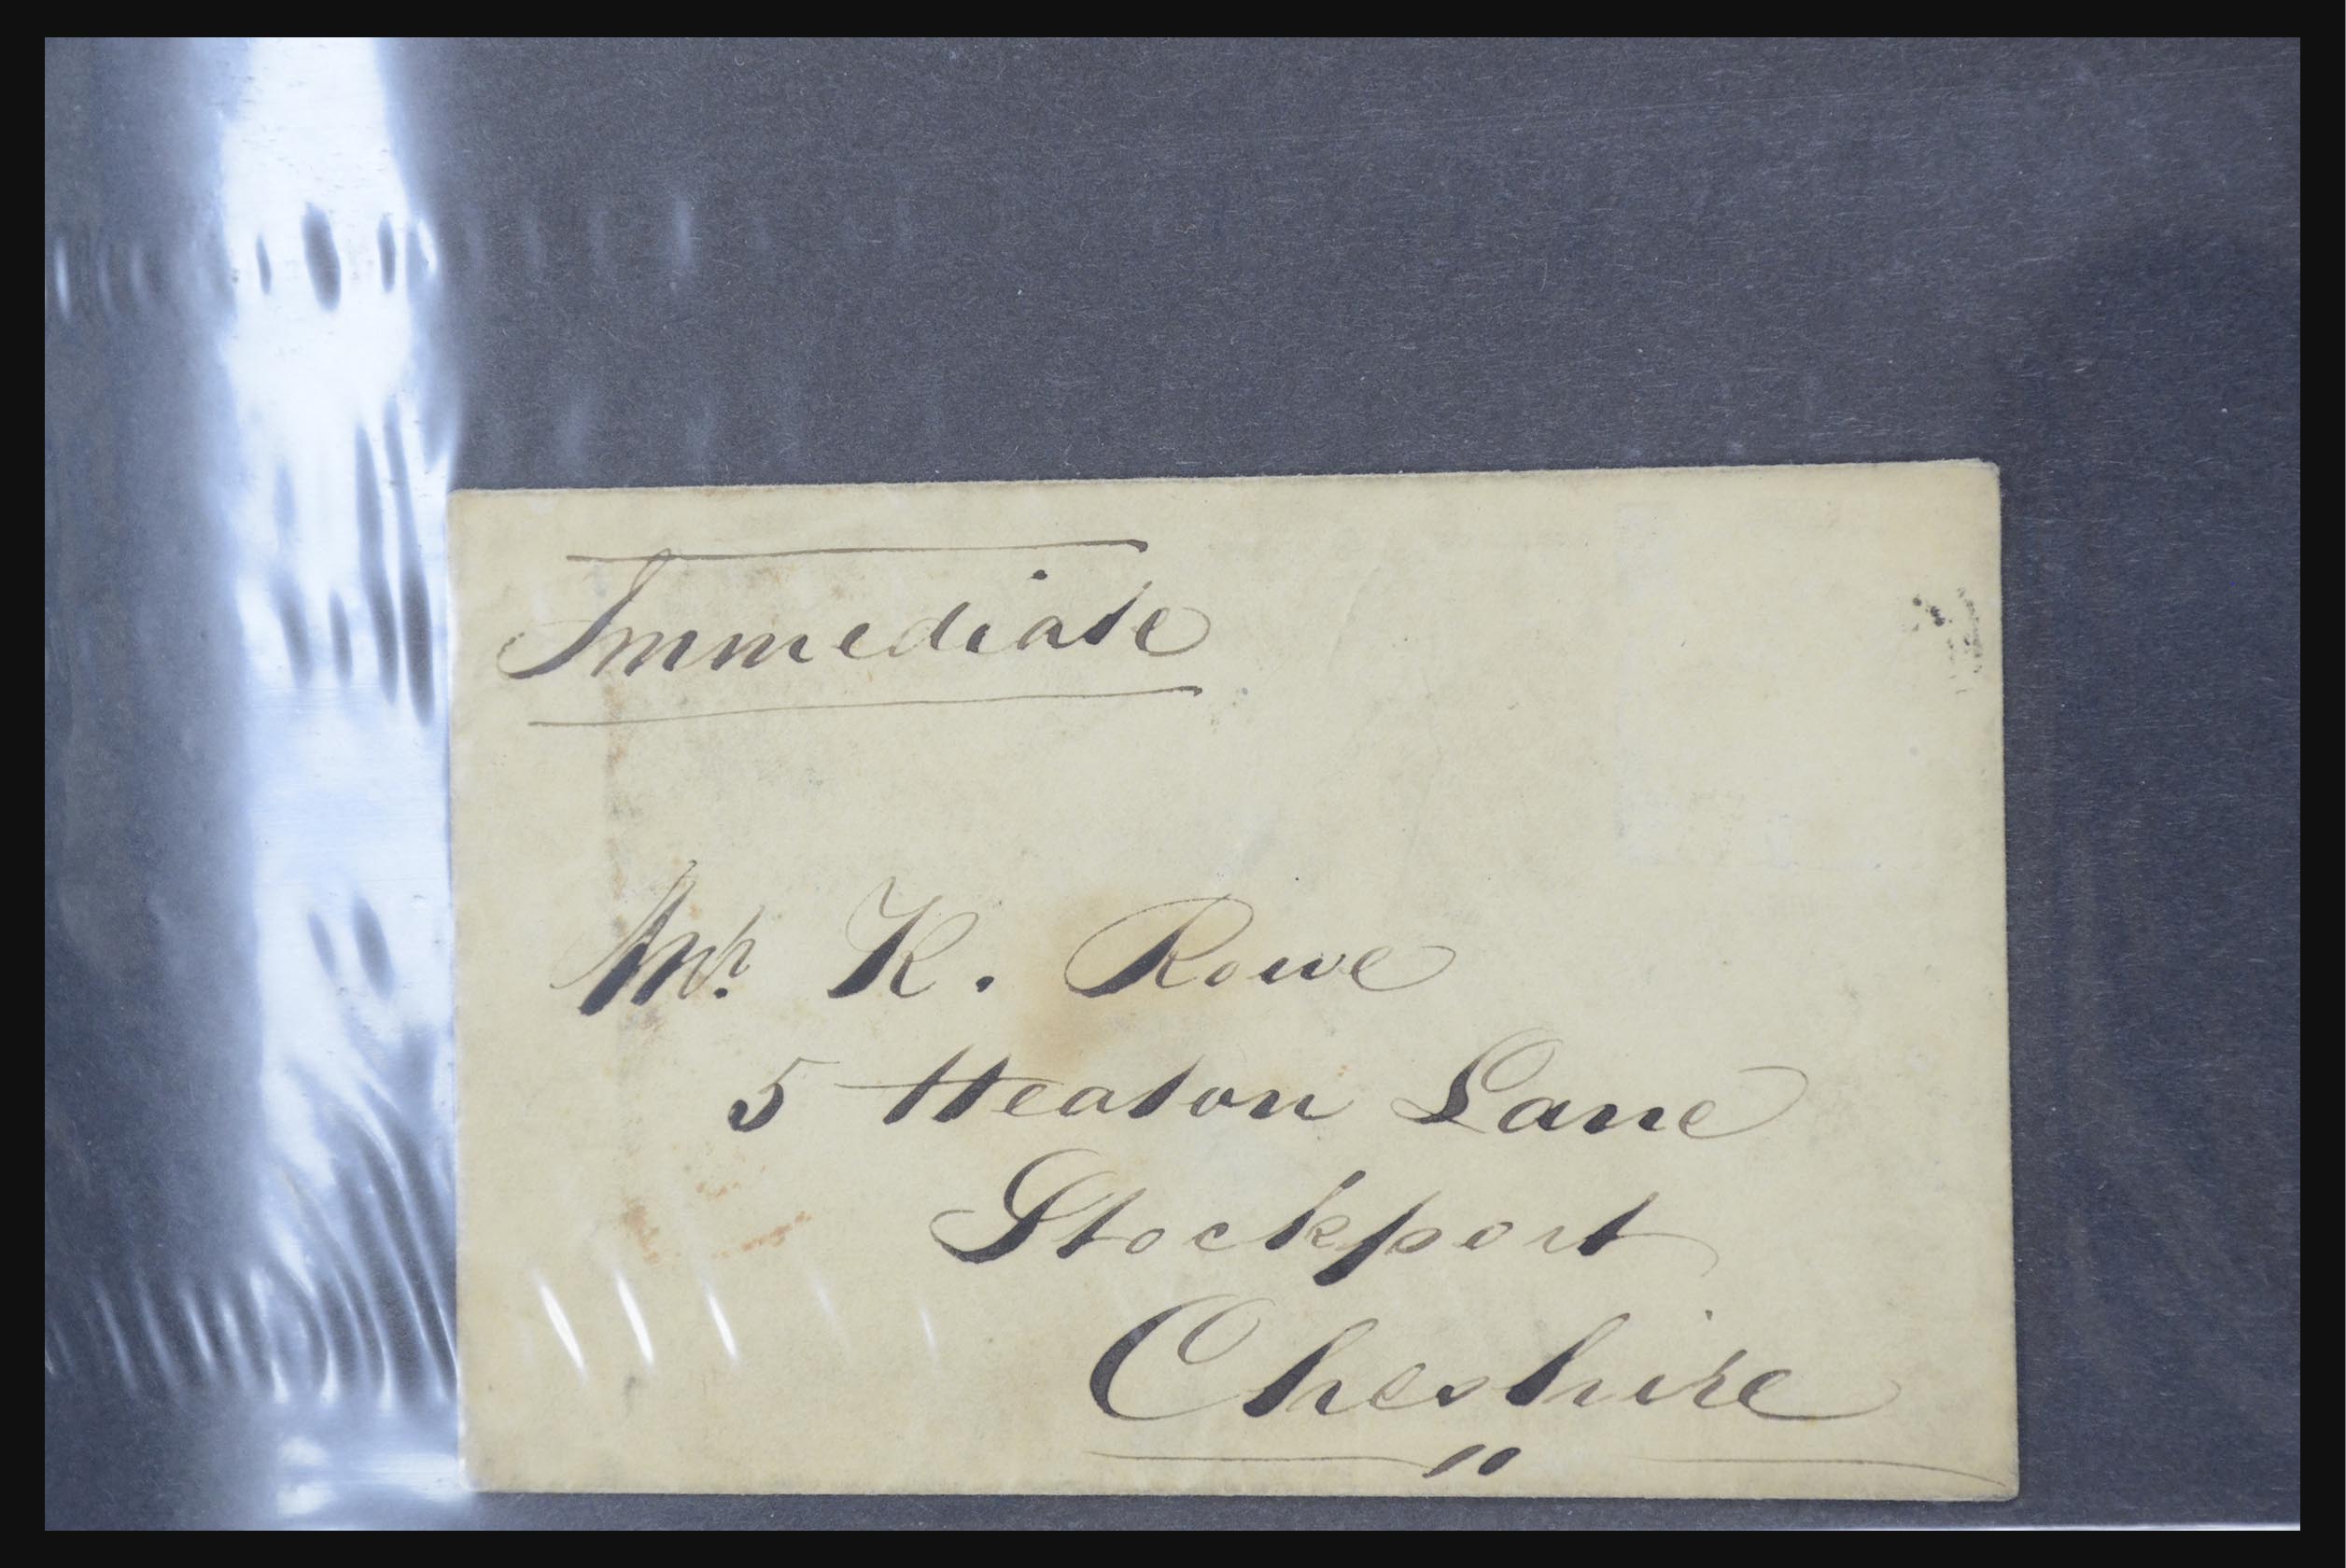 Immediate
Mr. K. Rowe
5 Heaton Lane
Stockport
Cheshire